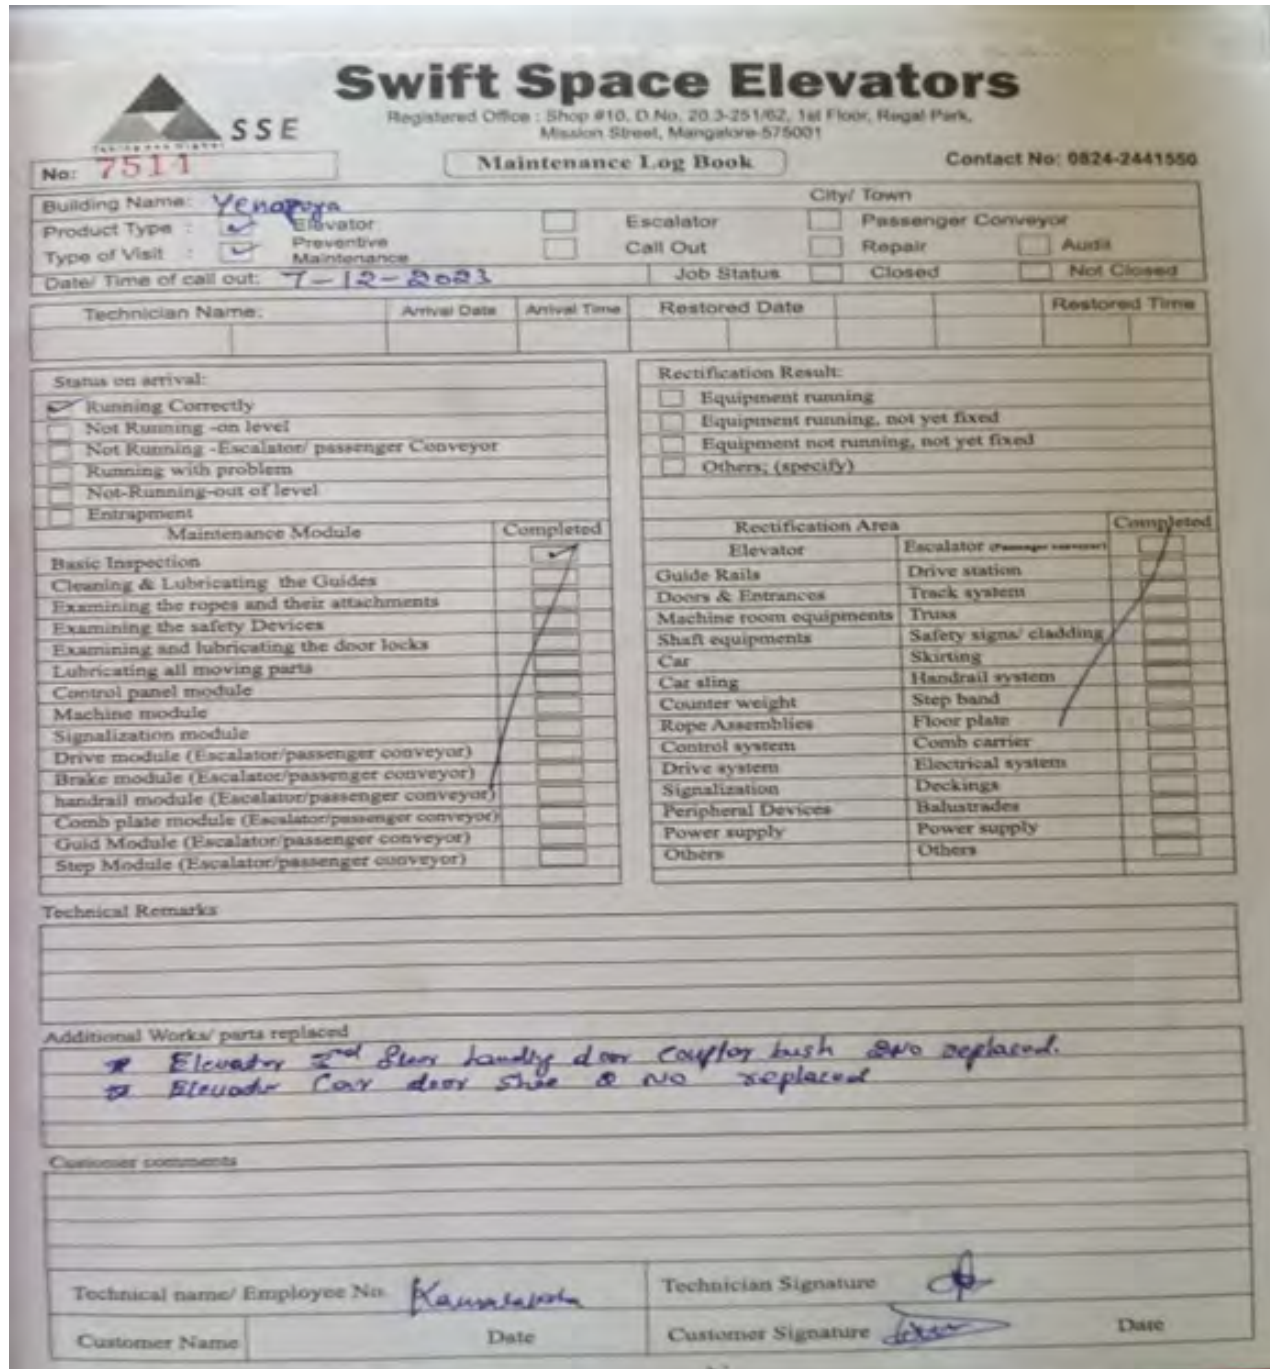 Swift Space Elevators
SSE
Registered Office : Shop #10, D.No. 20.3-251/62, 1st Floor, Regal Park,
Mission Street, Mangalore-575001
No: 7511
Maintenance Log Book
Contact No: 0824-2441550
Building Name: Yenapoya City/ Town
Product Type : Elevator Escalator Passenger Conveyor
Type of Visit : Preventive Maintenance Call Out Repair Audit
Date/ Time of call out: 7-12-2023 Job Status Closed Not Closed
Technician Name: Arrival Date Arrival Time Restored Date Restored Time
Status on arrival:
Running Correctly
Not Running -on level
Not Running -Escalator/ passenger Conveyor
Running with problem
Not-Running-out of level
Entrapment
Rectification Result:
Equipment running
Equipment running, not yet fixed
Equipment not running, not yet fixed
Others; (specify)
Maintenance Module Completed
Basic Inspection
Cleaning & Lubricating the Guides
Examining the ropes and their attachments
Examining the safety Devices
Examining and lubricating the door locks
Lubricating all moving parts
Control panel module
Machine module
Signalization module
Drive module (Escalator/passenger conveyor)
Brake module (Escalator/passenger conveyor)
handrail module (Escalator/passenger conveyor)
Comb plate module (Escalator/passenger conveyor)
Guid Module (Escalator/passenger conveyor)
Step Module (Escalator/passenger conveyor)
Rectification Area Completed
Elevator Escalator (Passenger conveyor)
Guide Rails Drive station
Doors & Entrances Track system
Machine room equipments Truss
Shaft equipments Safety signs/ cladding
Car Skirting
Car sling Handrail system
Counter weight Step band
Rope Assemblies Floor plate
Control system Comb carrier
Drive system Electrical system
Signalization Deckings
Peripheral Devices Balustrades
Power supply Power supply
Others Others
Technical Remarks
Additional Works/ parts replaced
Elevator 2nd door bush replaced.
Elevator Car door shoe NO replaced
Customer comments
Technical name/ Employee No. Technician Signature
Customer Name Date Customer Signature Date